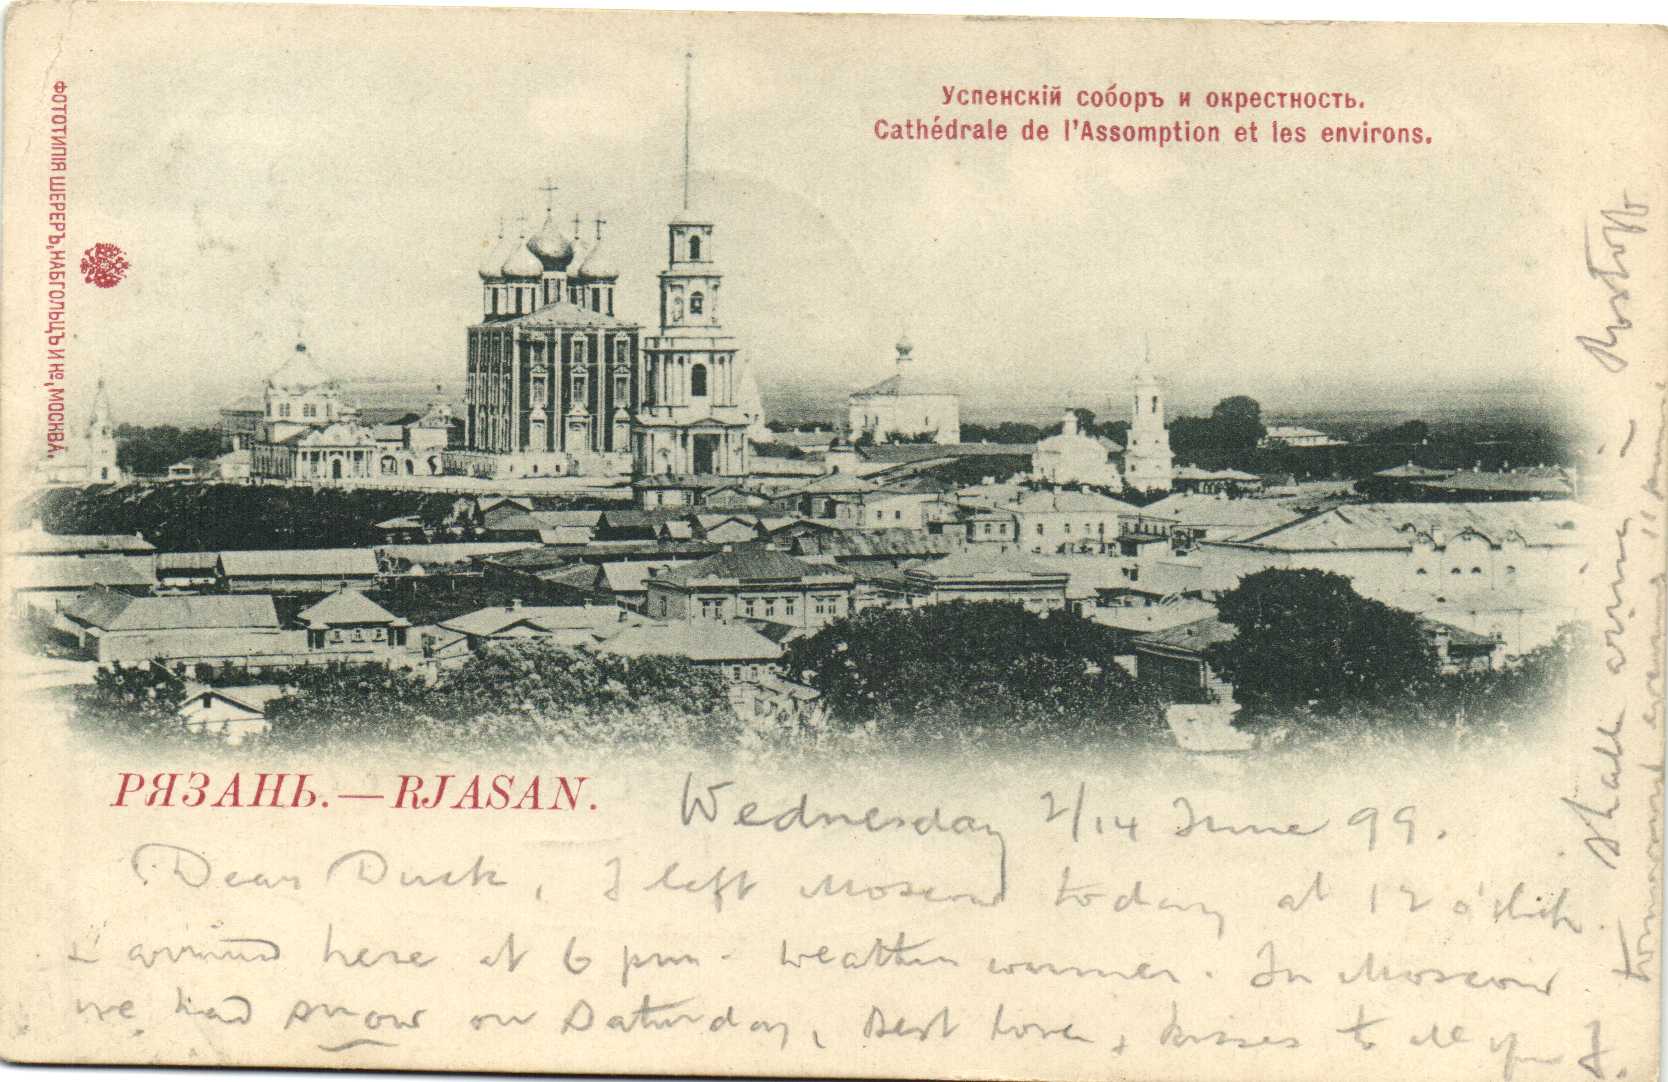 Успенскій соборъ и окрестность.
Cathédrale de l'Assomption et les environs.
ФОТОТИПІЯ ШЕРЕРЪ, НАБГОЛЬЦЪ И Кº, МОСКВА.
РЯЗАНЬ.—RJASAN.
Wednesday 2/14 June 99.
Dear Duck, I left Moscow today at 12 o'clock
& arrived here at 6 pm - weather warmer. In Moscow
we had snow on Saturday, Best love & kisses to all of you
Shall arrive - Rostoff
tomorrow evening 11